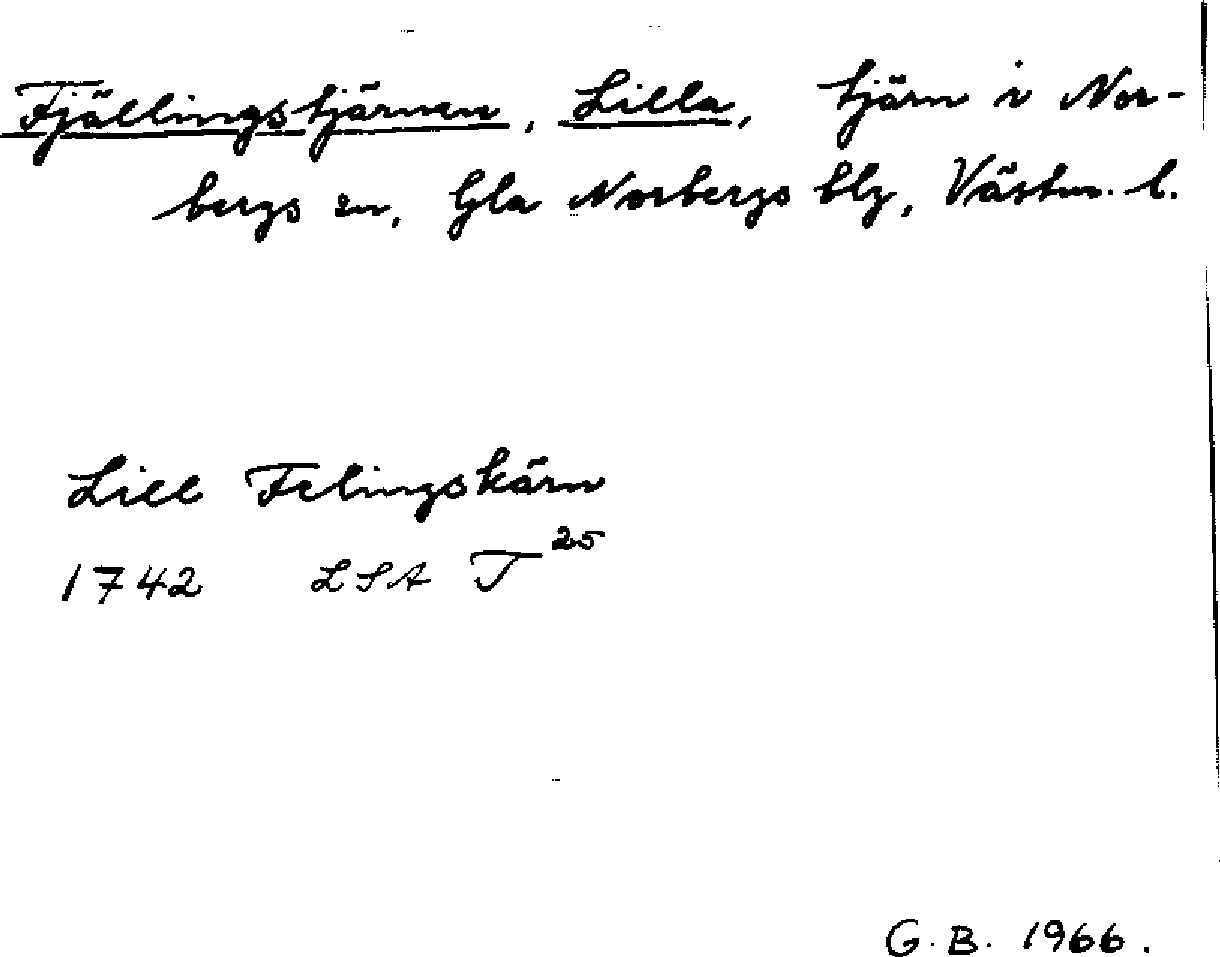 Fjällingstjärnen, Lilla, tjärn i Nor-
bergs sn, Gla Norbergs blg, Västm. l.
Lill Felingskärn
1742 LSA T 25
G. B. 1966.